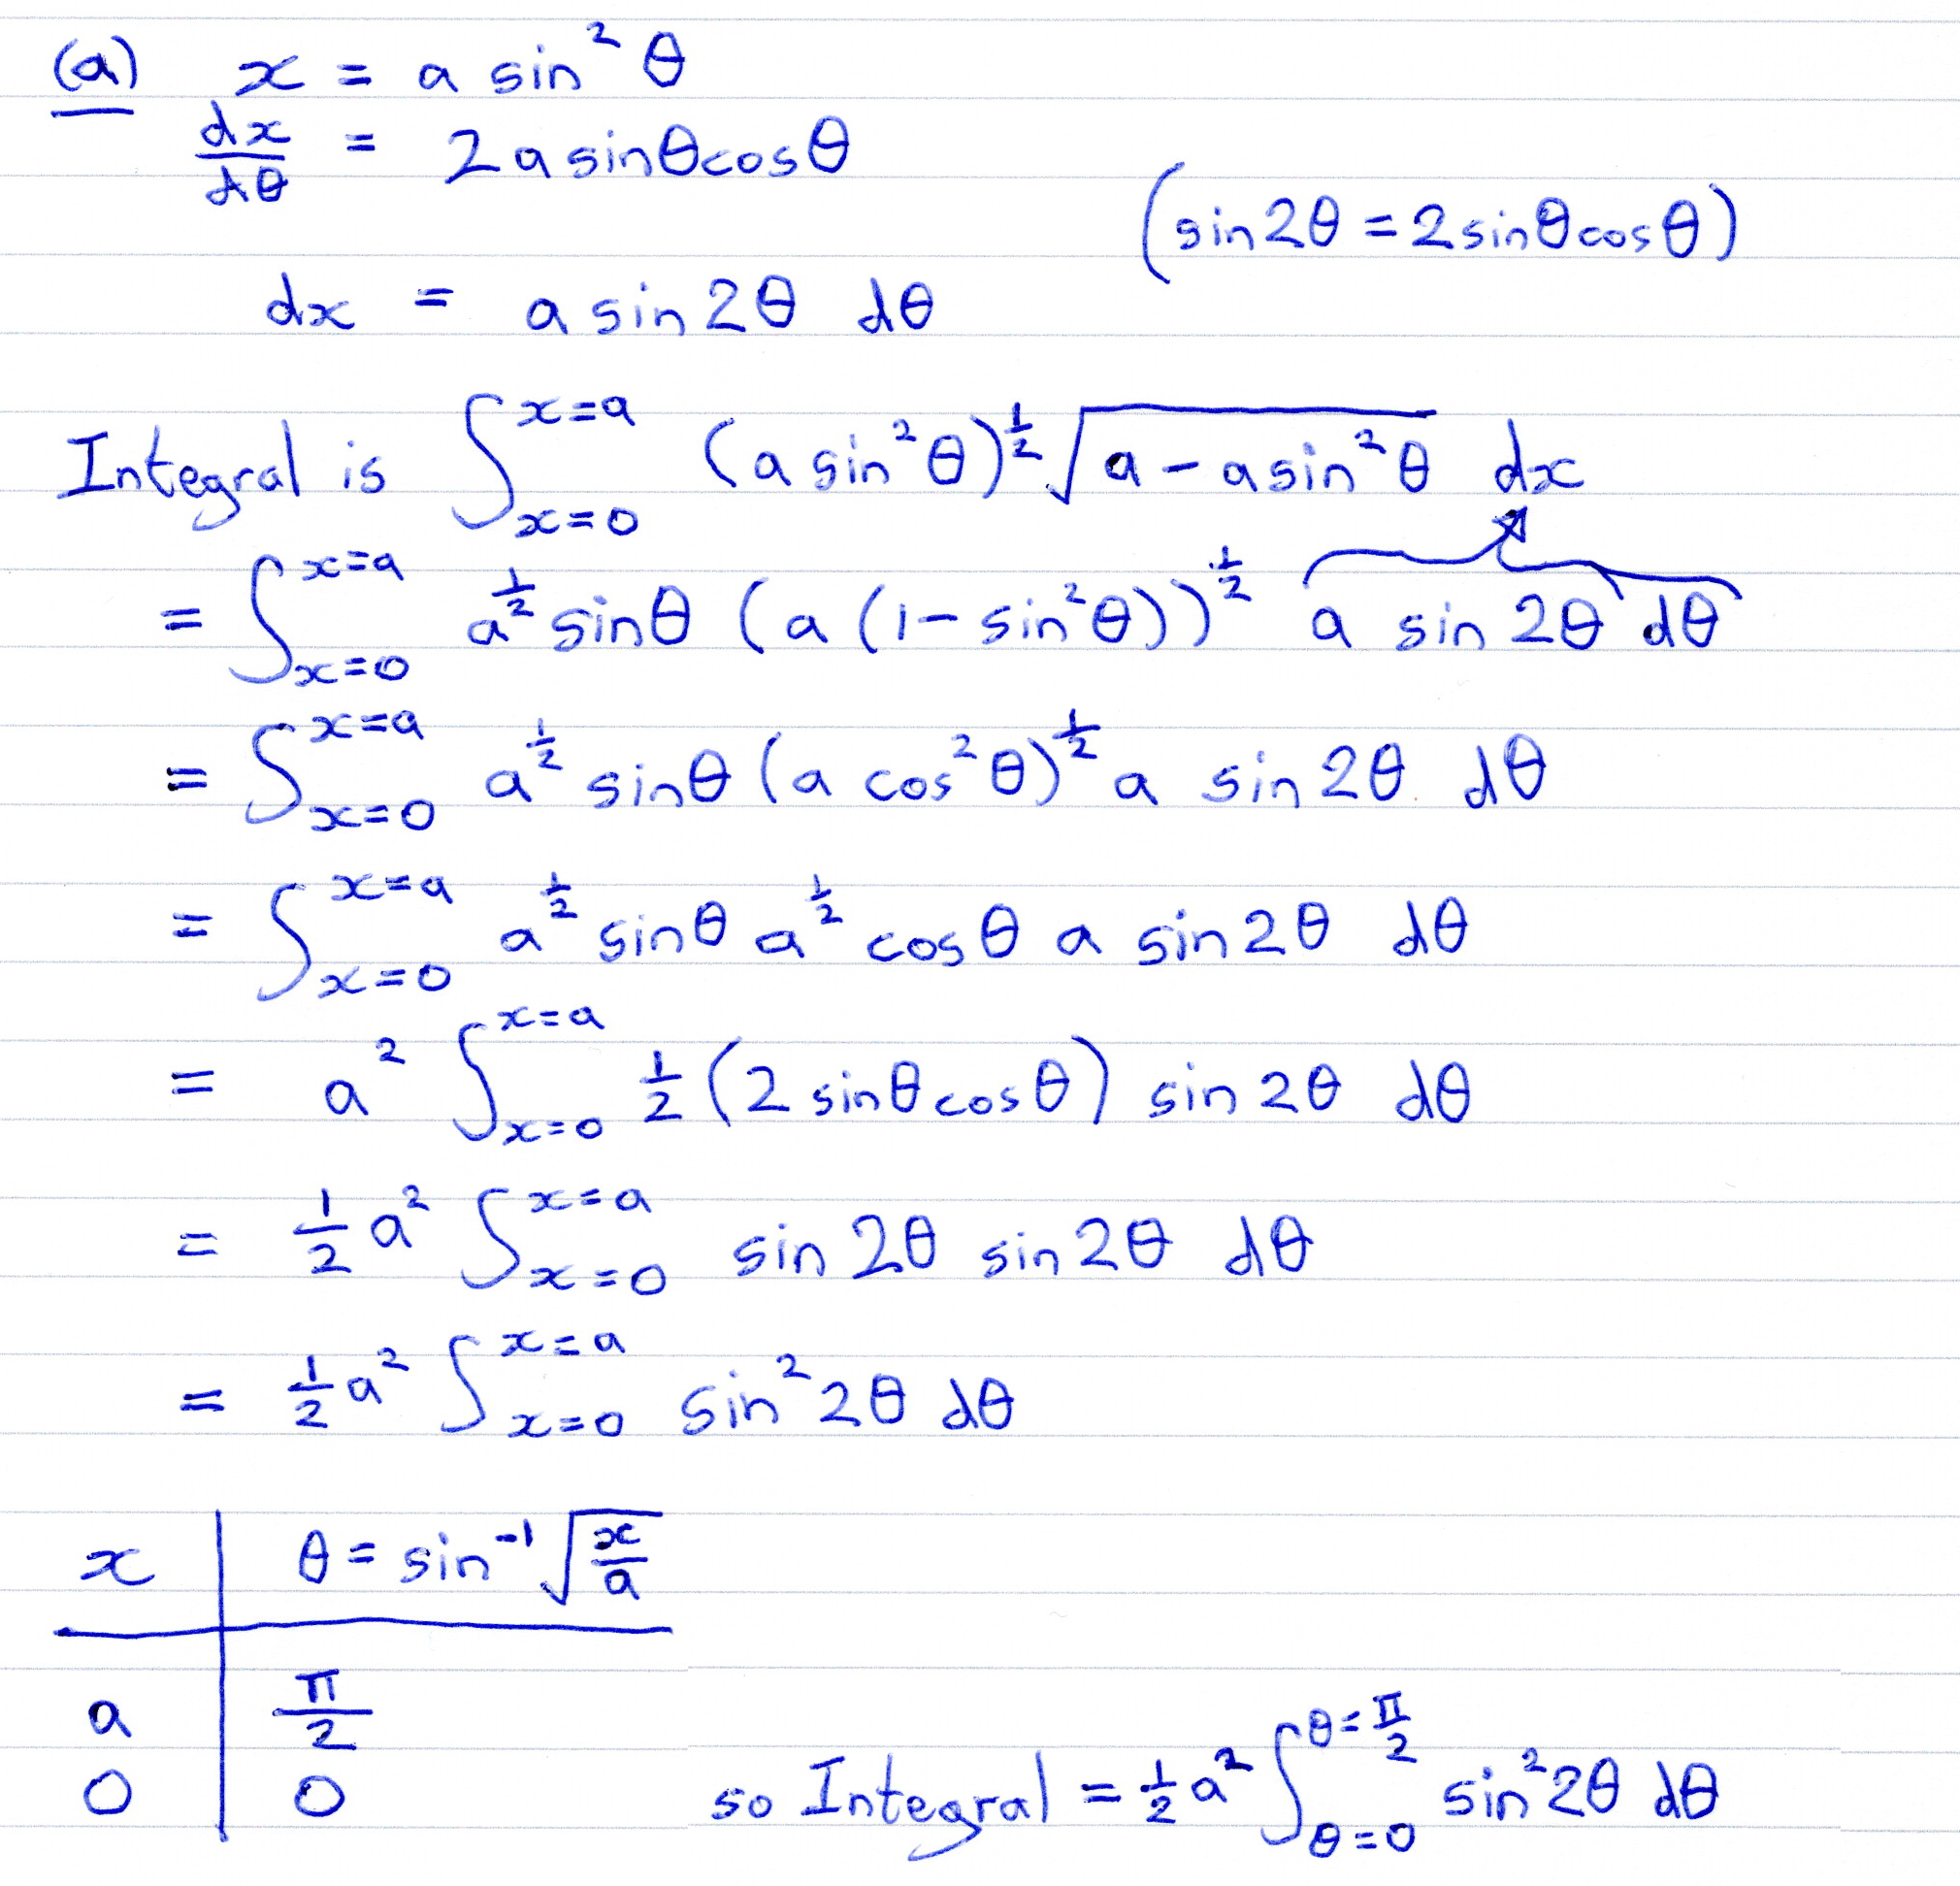 (a) x = a sin²θ
dx/dθ = 2a sinθcosθ
(sin2θ = 2sinθcosθ)
dx = a sin2θ dθ
Integral is ∫_{x=0}^{x=a} (a sin²θ)^{1/2} √(a - a sin²θ) dx
= ∫_{x=0}^{x=a} a^{1/2} sinθ (a(1 - sin²θ))^{1/2} a sin2θ dθ
= ∫_{x=0}^{x=a} a^{1/2} sinθ (a cos²θ)^{1/2} a sin2θ dθ
= ∫_{x=0}^{x=a} a^{1/2} sinθ a^{1/2} cosθ a sin2θ dθ
= a² ∫_{x=0}^{x=a} 1/2 (2 sinθcosθ) sin2θ dθ
= 1/2 a² ∫_{x=0}^{x=a} sin2θ sin2θ dθ
= 1/2 a² ∫_{x=0}^{x=a} sin²2θ dθ
x | θ = sin⁻¹ √(x/a)
a | π/2
0 | 0
so Integral = 1/2 a² ∫_{θ=0}^{θ=π/2} sin²2θ dθ